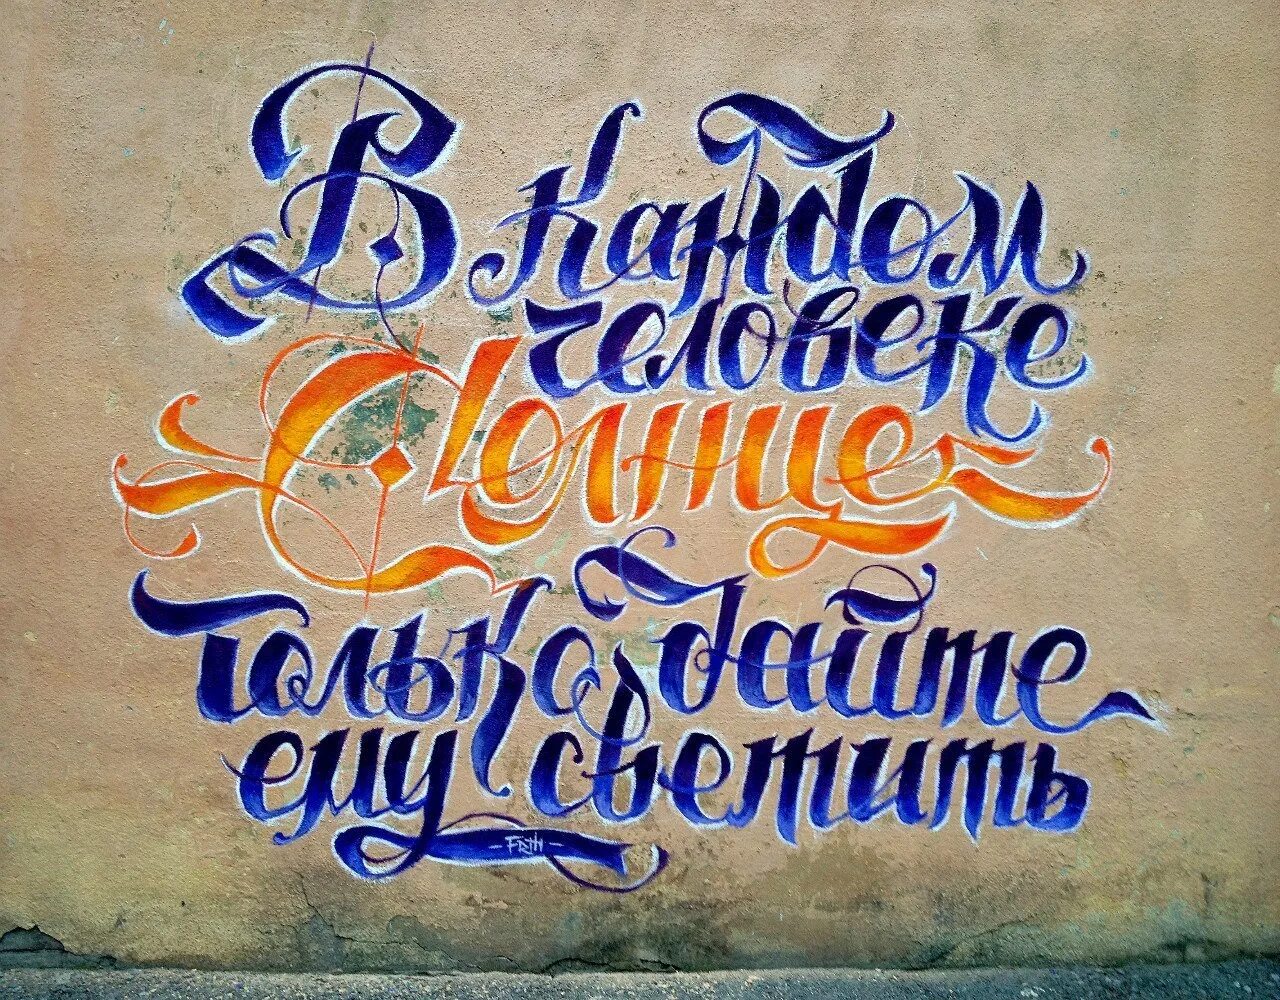 В каждом
человеке
Солнце
только дайте
ему светить